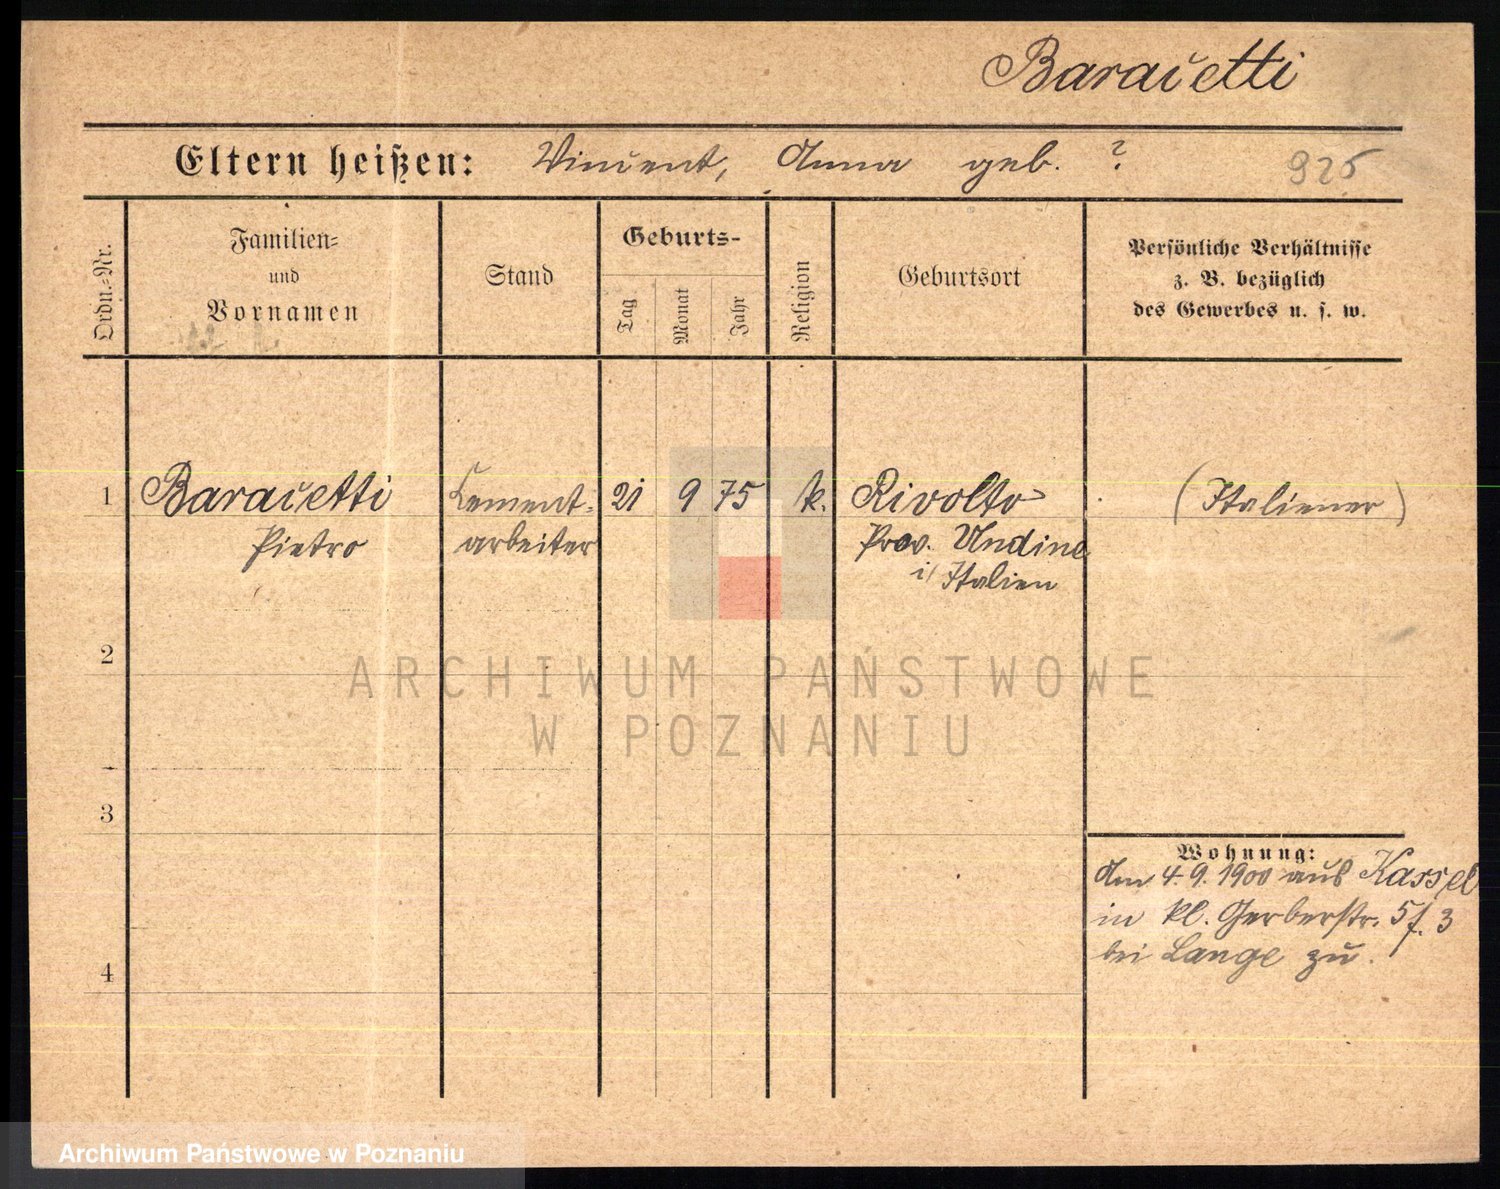 Baracetti
Eltern heißen: Vincent, Anna geb. ?
925
Ordn.-Nr.
Familien-
und
Vornamen
Stand
Geburts-
Tag
Monat
Jahr
Religion
Geburtsort
Persönliche Verhältnisse
z. B. bezüglich
des Gewerbes u. s. w.
1 Baracetti Cement- 21 9 75 k. Rivolto (Italiener)
Pietro arbeiter Prov. Undine
i/Italien
2
ARCHIWUM PAŃSTWOWE
W POZNANIU
3
Wohnung:
Am 4.9.1900 aus Kassel
in kl. Gerberstr. 5 f. 3
bei Lange zu.
4
Archiwum Państwowe w Poznaniu